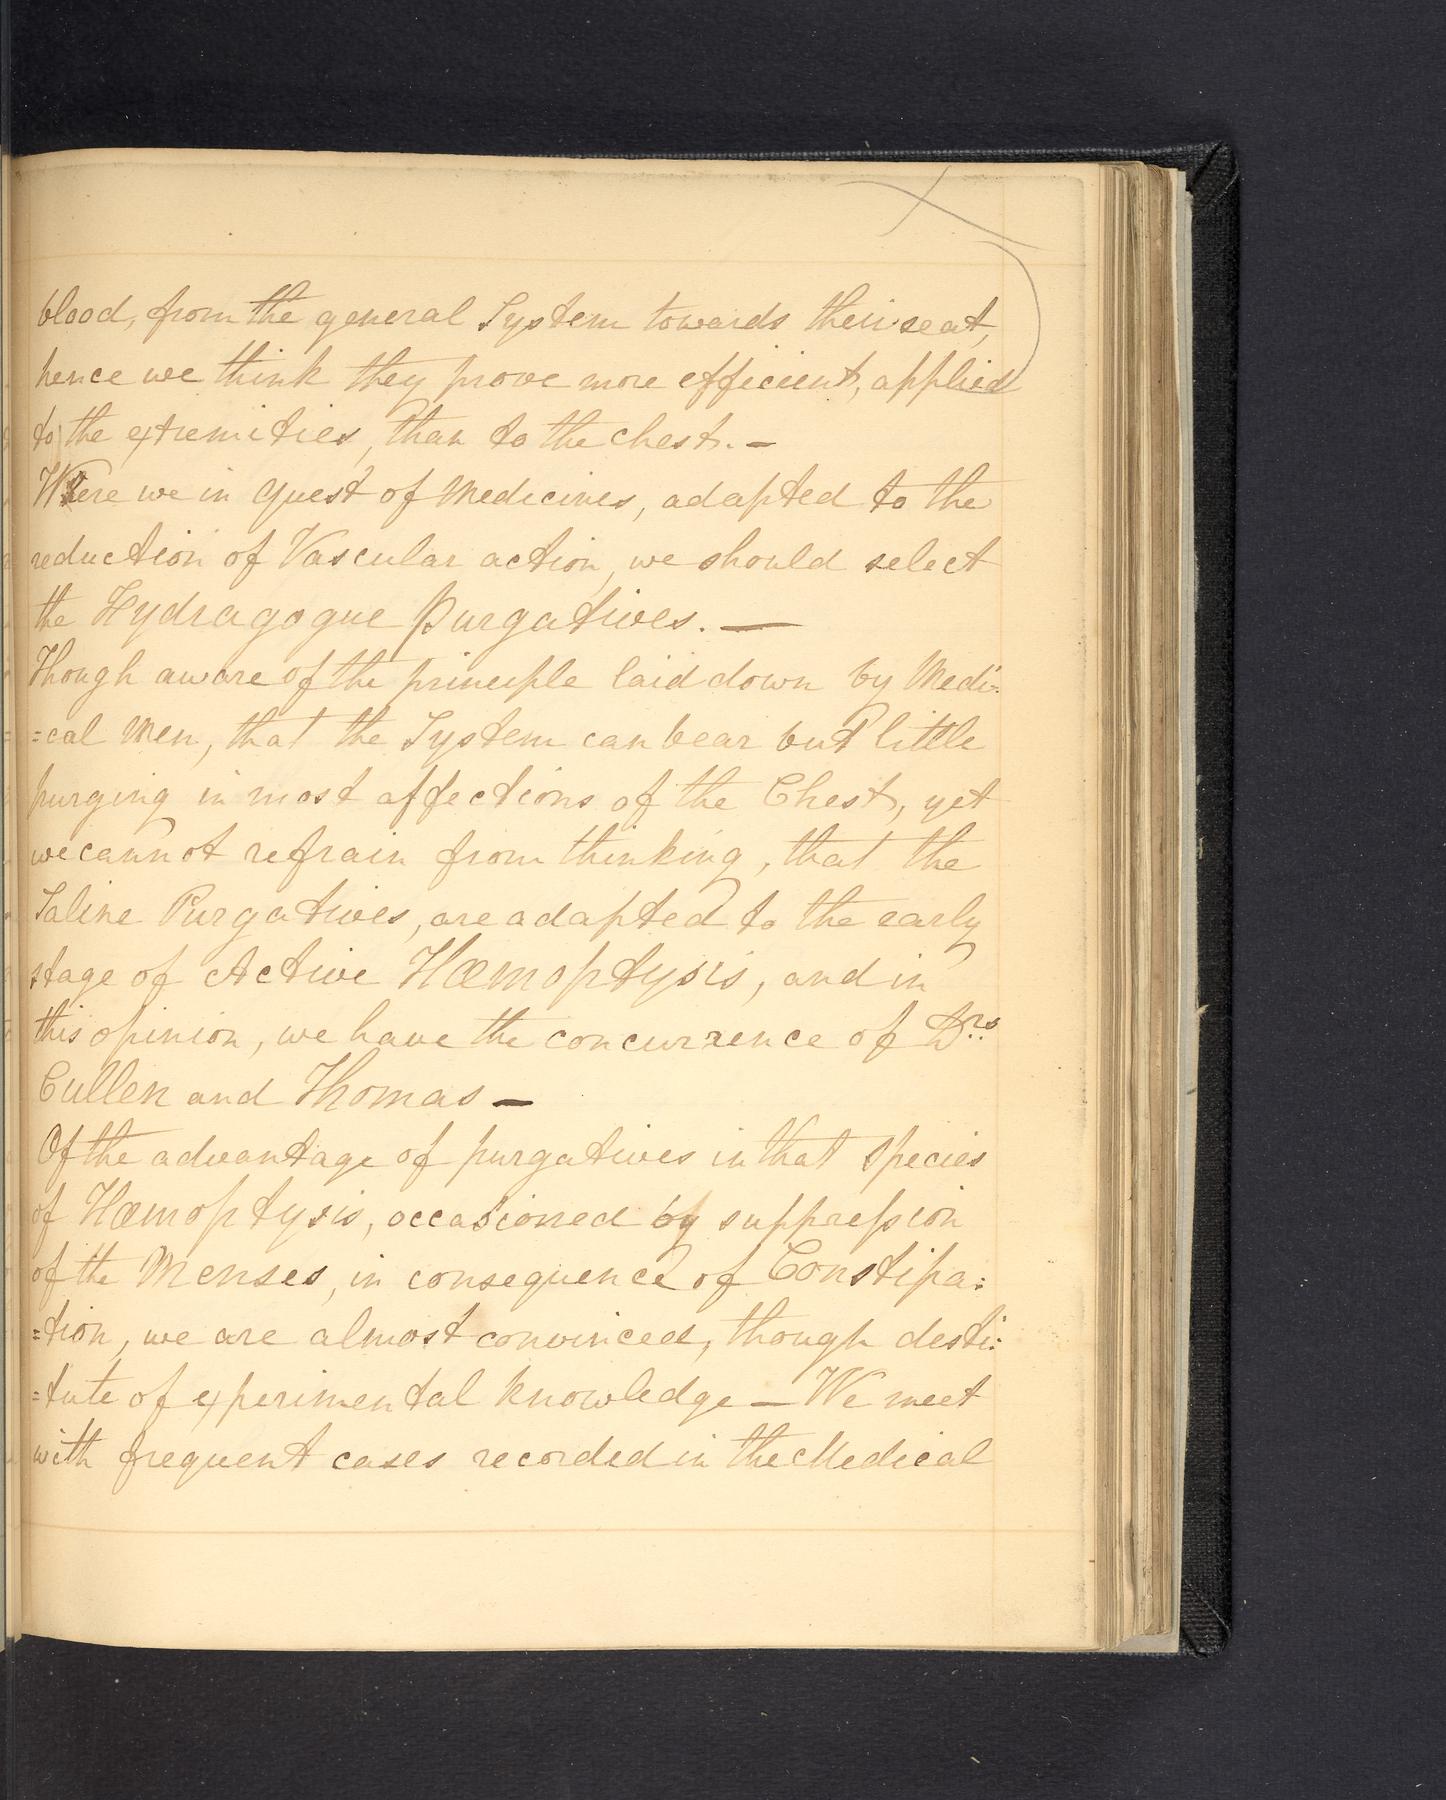 blood, from the general System towards their seat,
hence we think they prove more efficient, applied
to the extremities, than to the chest. —
Were we in quest of Medicines, adapted to the
reduction of Vascular action, we should select
the Hydragogue Purgatives. —
Though aware of the principle laid down by Medi:
=cal Men, that the System can bear but little
purging in most affections of the Chest, yet
we cannot refrain from thinking, that the
Saline Purgatives, are adapted to the early
stage of Active Hœmoptysis, and in
this opinion, we have the concurrence of Drs
Cullen and Thomas —
Of the advantage of purgatives in that species
of Hœmoptysis, occasioned by suppreſsion
of the Menses, in consequence of Constipa:
=tion, we are almost convinced, though desti:
=tute of experimental knowledge — We meet
with frequent cases recorded in the Medical